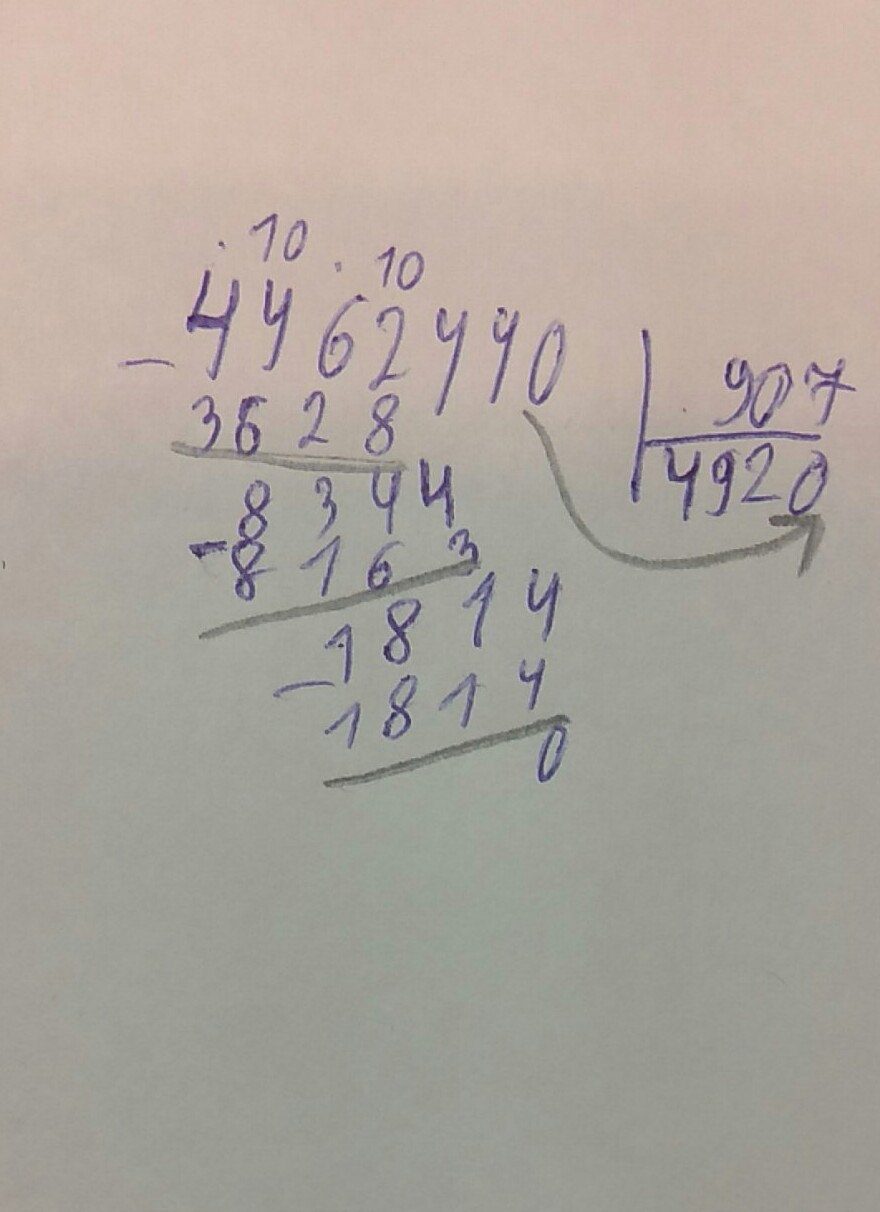 . 10 . 10
- 4462440 | 907
3628 4920
8344
- 8163
1814
- 1814
0